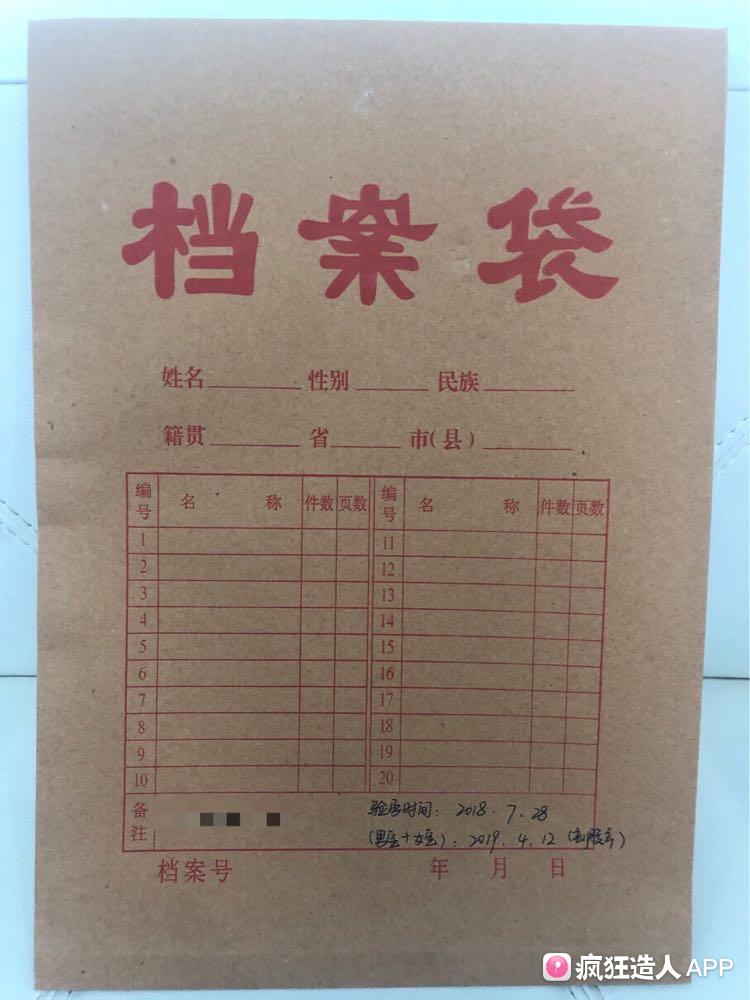 档案袋
姓名 性别 民族
籍贯 省 市(县)
编号 名称 件数 页数 编号 名称 件数 页数
1 11
2 12
3 13
4 14
5 15
6 16
7 17
8 18
9 19
10 20
备注 验孕时间: 2018.7.28
(男宝+女宝): 2019.4.12 (剖腹产)
档案号 年 月 日
疯狂造人 APP